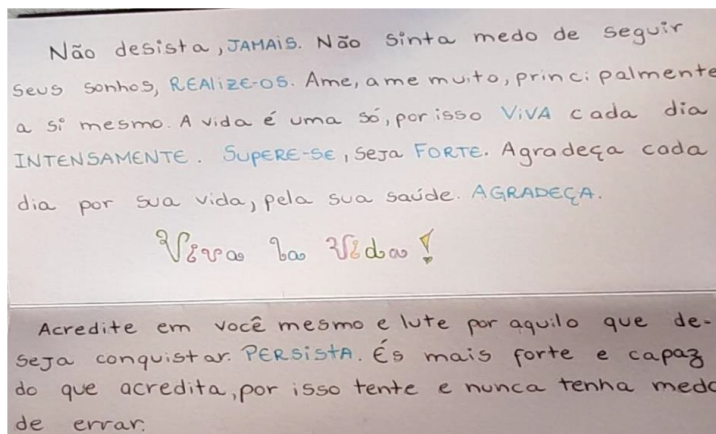 Não desista, JAMAIS. Não sinta medo de seguir
seus sonhos, REALIZE-OS. Ame, ame muito, principalmente
a si mesmo. A vida é uma só, por isso VIVA cada dia
INTENSAMENTE. SUPERE-SE, seja FORTE. Agradeça cada
dia por sua vida, pela sua saúde. AGRADEÇA.
Viva la Vida!
Acredite em você mesmo e lute por aquilo que de-
seja conquistar. PERSISTA. És mais forte e capaz
do que acredita, por isso tente e nunca tenha medo
de errar.